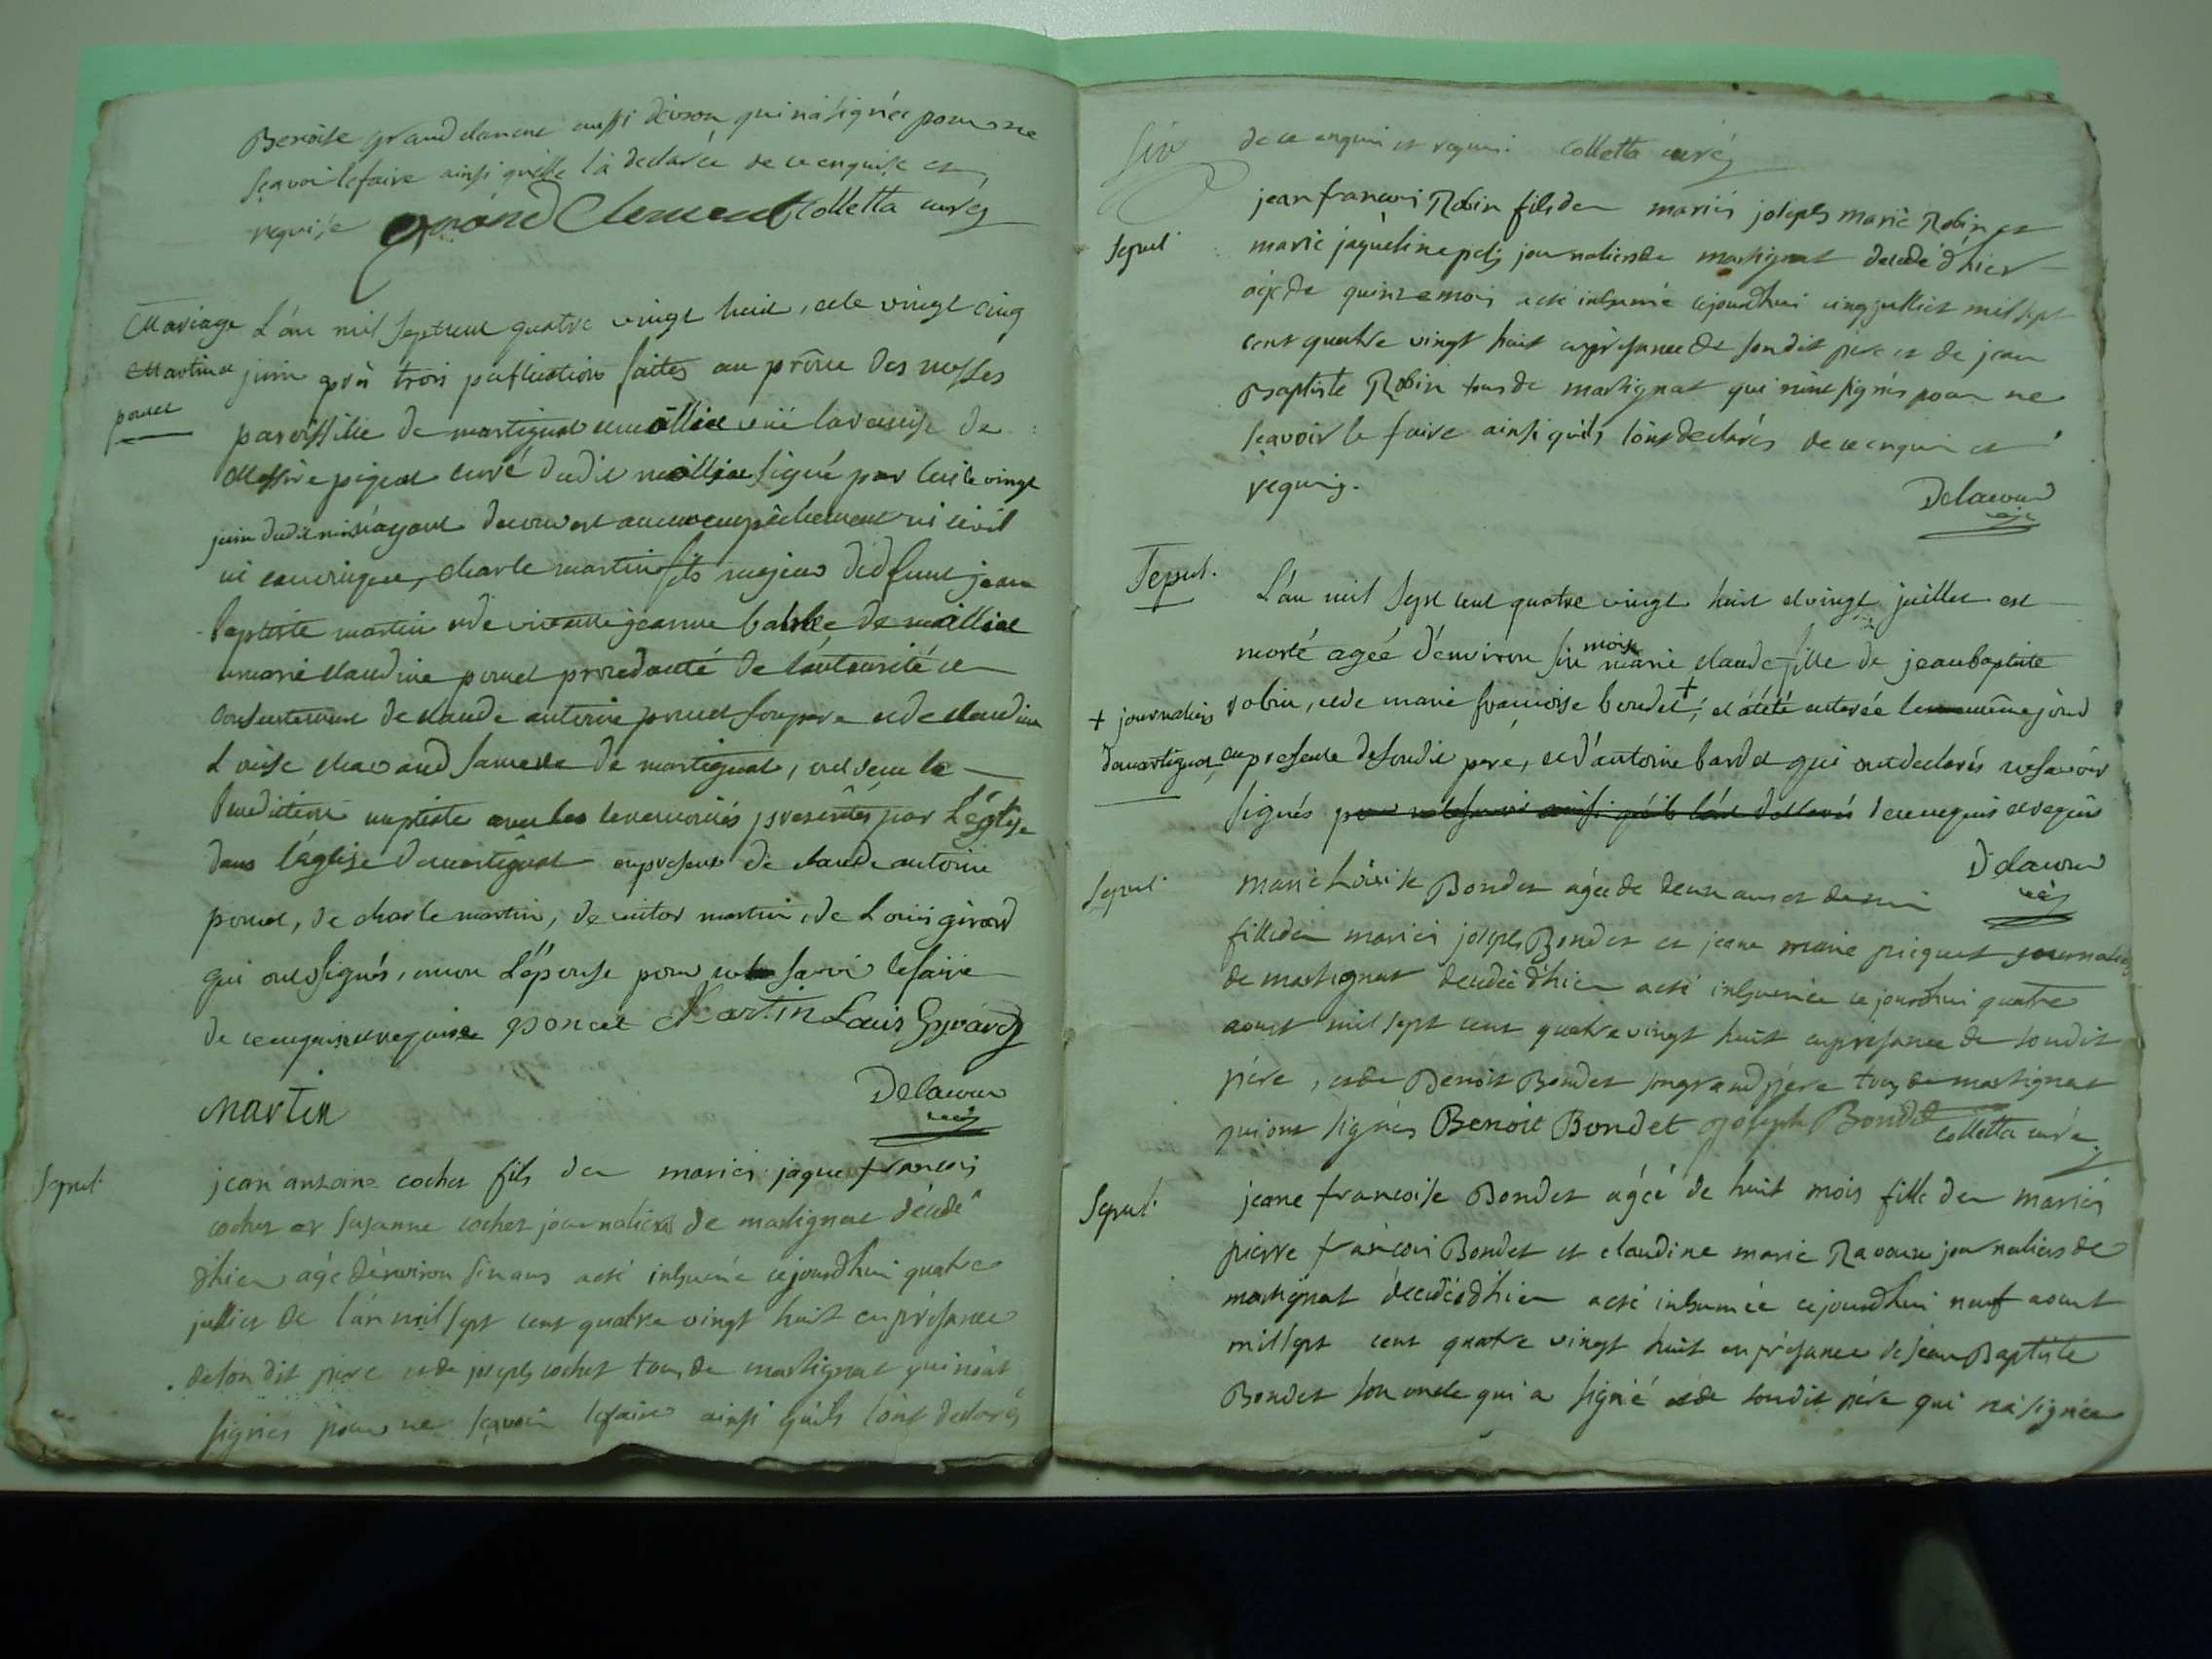 Benoite grand clement aussi d'izson qui n'a signée pour ne
sçavoir le faire ainsi qu'elle l'a declarée de ce enquise et
requise grand Clement Colletta curé
Mariage L'an mil sept cent quatre vingt huit, et le vingt cinq
Martin et juin après trois publications faites au prône des messes
poncet
paroissille de martignat et maillat vüe la remise de
Messire curé dudit maillat signé par lui le vingt
juin dudit mois n'ayant decouvert aucun empêchement ni civil
ni canonique, charle martin fils majeur de defunt jean
baptiste martin et de vivante jeanne de maillat
et marie claudine poncet procedante de l'autorité et
consentement de claude antoine poncet son père et de claudine
Louise chavand sa mere de martignat, ont reçu la
benediction nuptiale avec les ceremonies presentés par L'église
dans l'aglise de martignat en presence de claude antoine
poncet, de charle martin, de victor martin, de Louis girard
qui ont signés, et non L'épouse pour ne savoir le faire
de ce enquise et requise poncet Martin Louis Gyrard
Martin Delacour
Sepul. jean antoine cochet fils des mariés jaque francois
cochet et susanne cochet journaliers de martignat décedé
d'hier agé d'environ six ans a eté inhumé ce jourd'hui quatre
juillet de l'an mil sept cent quatre vingt huit en présance
de son dit pere et de joseph cochet tous de martignat qui n'ont
signés pour ne sçavoir le faire ainsi qu'ils l'ont declarés
six de ce enquis et requis. Colletta curé
jean francois Robin fils des mariés joseph marie Robin et
Sepul. marie jaqueline journaliers de martignat decedé d'hier
agé de quinze mois a eté inhumé ce jourd'hui cinq juillet mil sept
cent quatre vingt huit en présance de son dit pere et de jean
Baptiste Robin tous de martignat qui n'ont signés pour ne
sçavoir le faire ainsi qu'ils l'ont declarés de ce enquis et
requis.
Delacour
Sepul. L'an mil sept cent quatre vingt huit et vingt juillet est
morte agée d'environ six mois marie claude fille de jean baptiste
robin, et de marie francoise bondet +, et a été enterée le même jour
+ journaliers
de martignat, en presence de son dit pere, et d'antoine bardet qui ont declarés ne savoir
signés pour ne le savoir ainsi qu'ils l'ont declarés de ce enquis et requis
Delacour
Sepul. marie Loüise Bondet agée de deux ans et demi
fille des mariés joseph Bondet et jeane marie picquet journaliers
de martignat decedée d'hier a eté inhumée ce jourd'hui quatre
aoust mil sept cent quatre vingt huit en présance de son dit
pére, et de Benoit Bondet son grand pére tous de martignat
qui ont signés Benoit Bondet joseph Bondet Colletta curé
Sepul. jeane francoise Bondet agée de huit mois fille des mariés
pierre francois Bondet et claudine marie Ravoux journaliers de
martignat décedée d'hier a eté inhumée ce jourd'hui neuf aoust
mil sept cent quatre vingt huit en présance de jean Baptiste
Bondet son oncle qui a signé et de son dit pére qui n'a signée